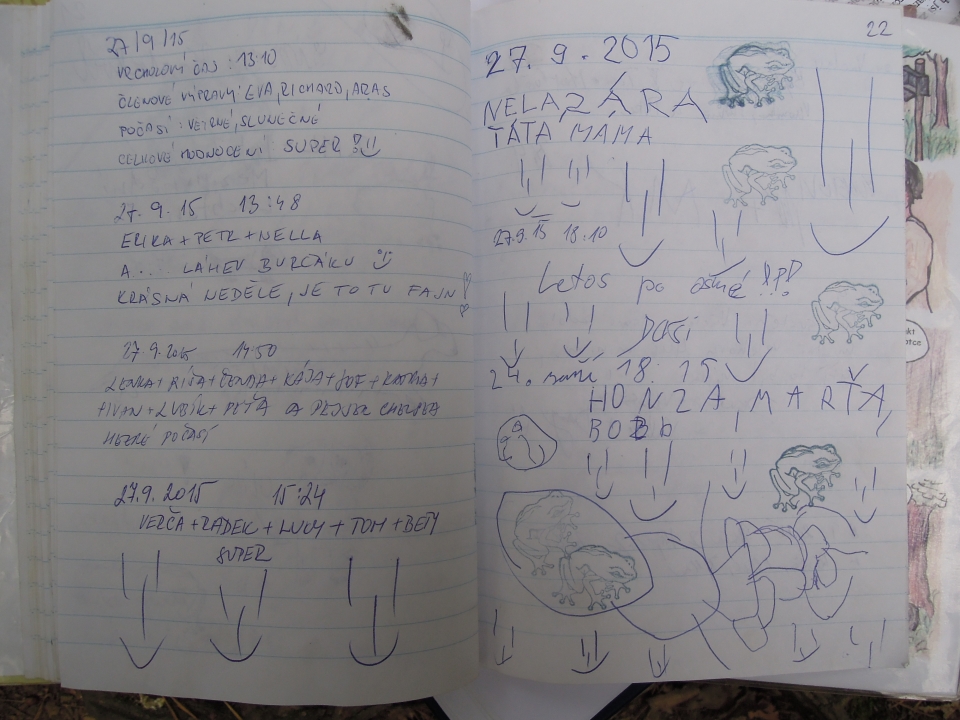 27/9/15
VRCHOLOVÝ ČAS : 13:10
ČLENOVÉ VÝPRAVY: EVA, RICHARD, ARAS
POČASÍ : VĚTRNÉ, SLUNEČNÉ
CELKOVÉ HODNOCENÍ SUPER !
27. 9. 15 13:48
ERIKA + PETR + NELLA
A... LÁHEV BURČÁKU
KRÁSNÁ NEDĚLE, JE TO TU FAJN
27.9.2015 14:50
LENKA + RIŠA + + KÁJA + + +
+ IVAN + LUBÍK + PEŤA A PEJSEK CHELSEA
HEZKÉ POČASÍ
27.9.2015 15:24
VERČA + RADEK + LUCY + TOM + BETY
SUPER
22
27. 9. 2015
NELA ZÁRA
TÁTA MÁMA
27.9.15 18.10
Letos po osmé !!!
DOŠI
27. září 18.15
HONZA, MARŤA,
BOBB